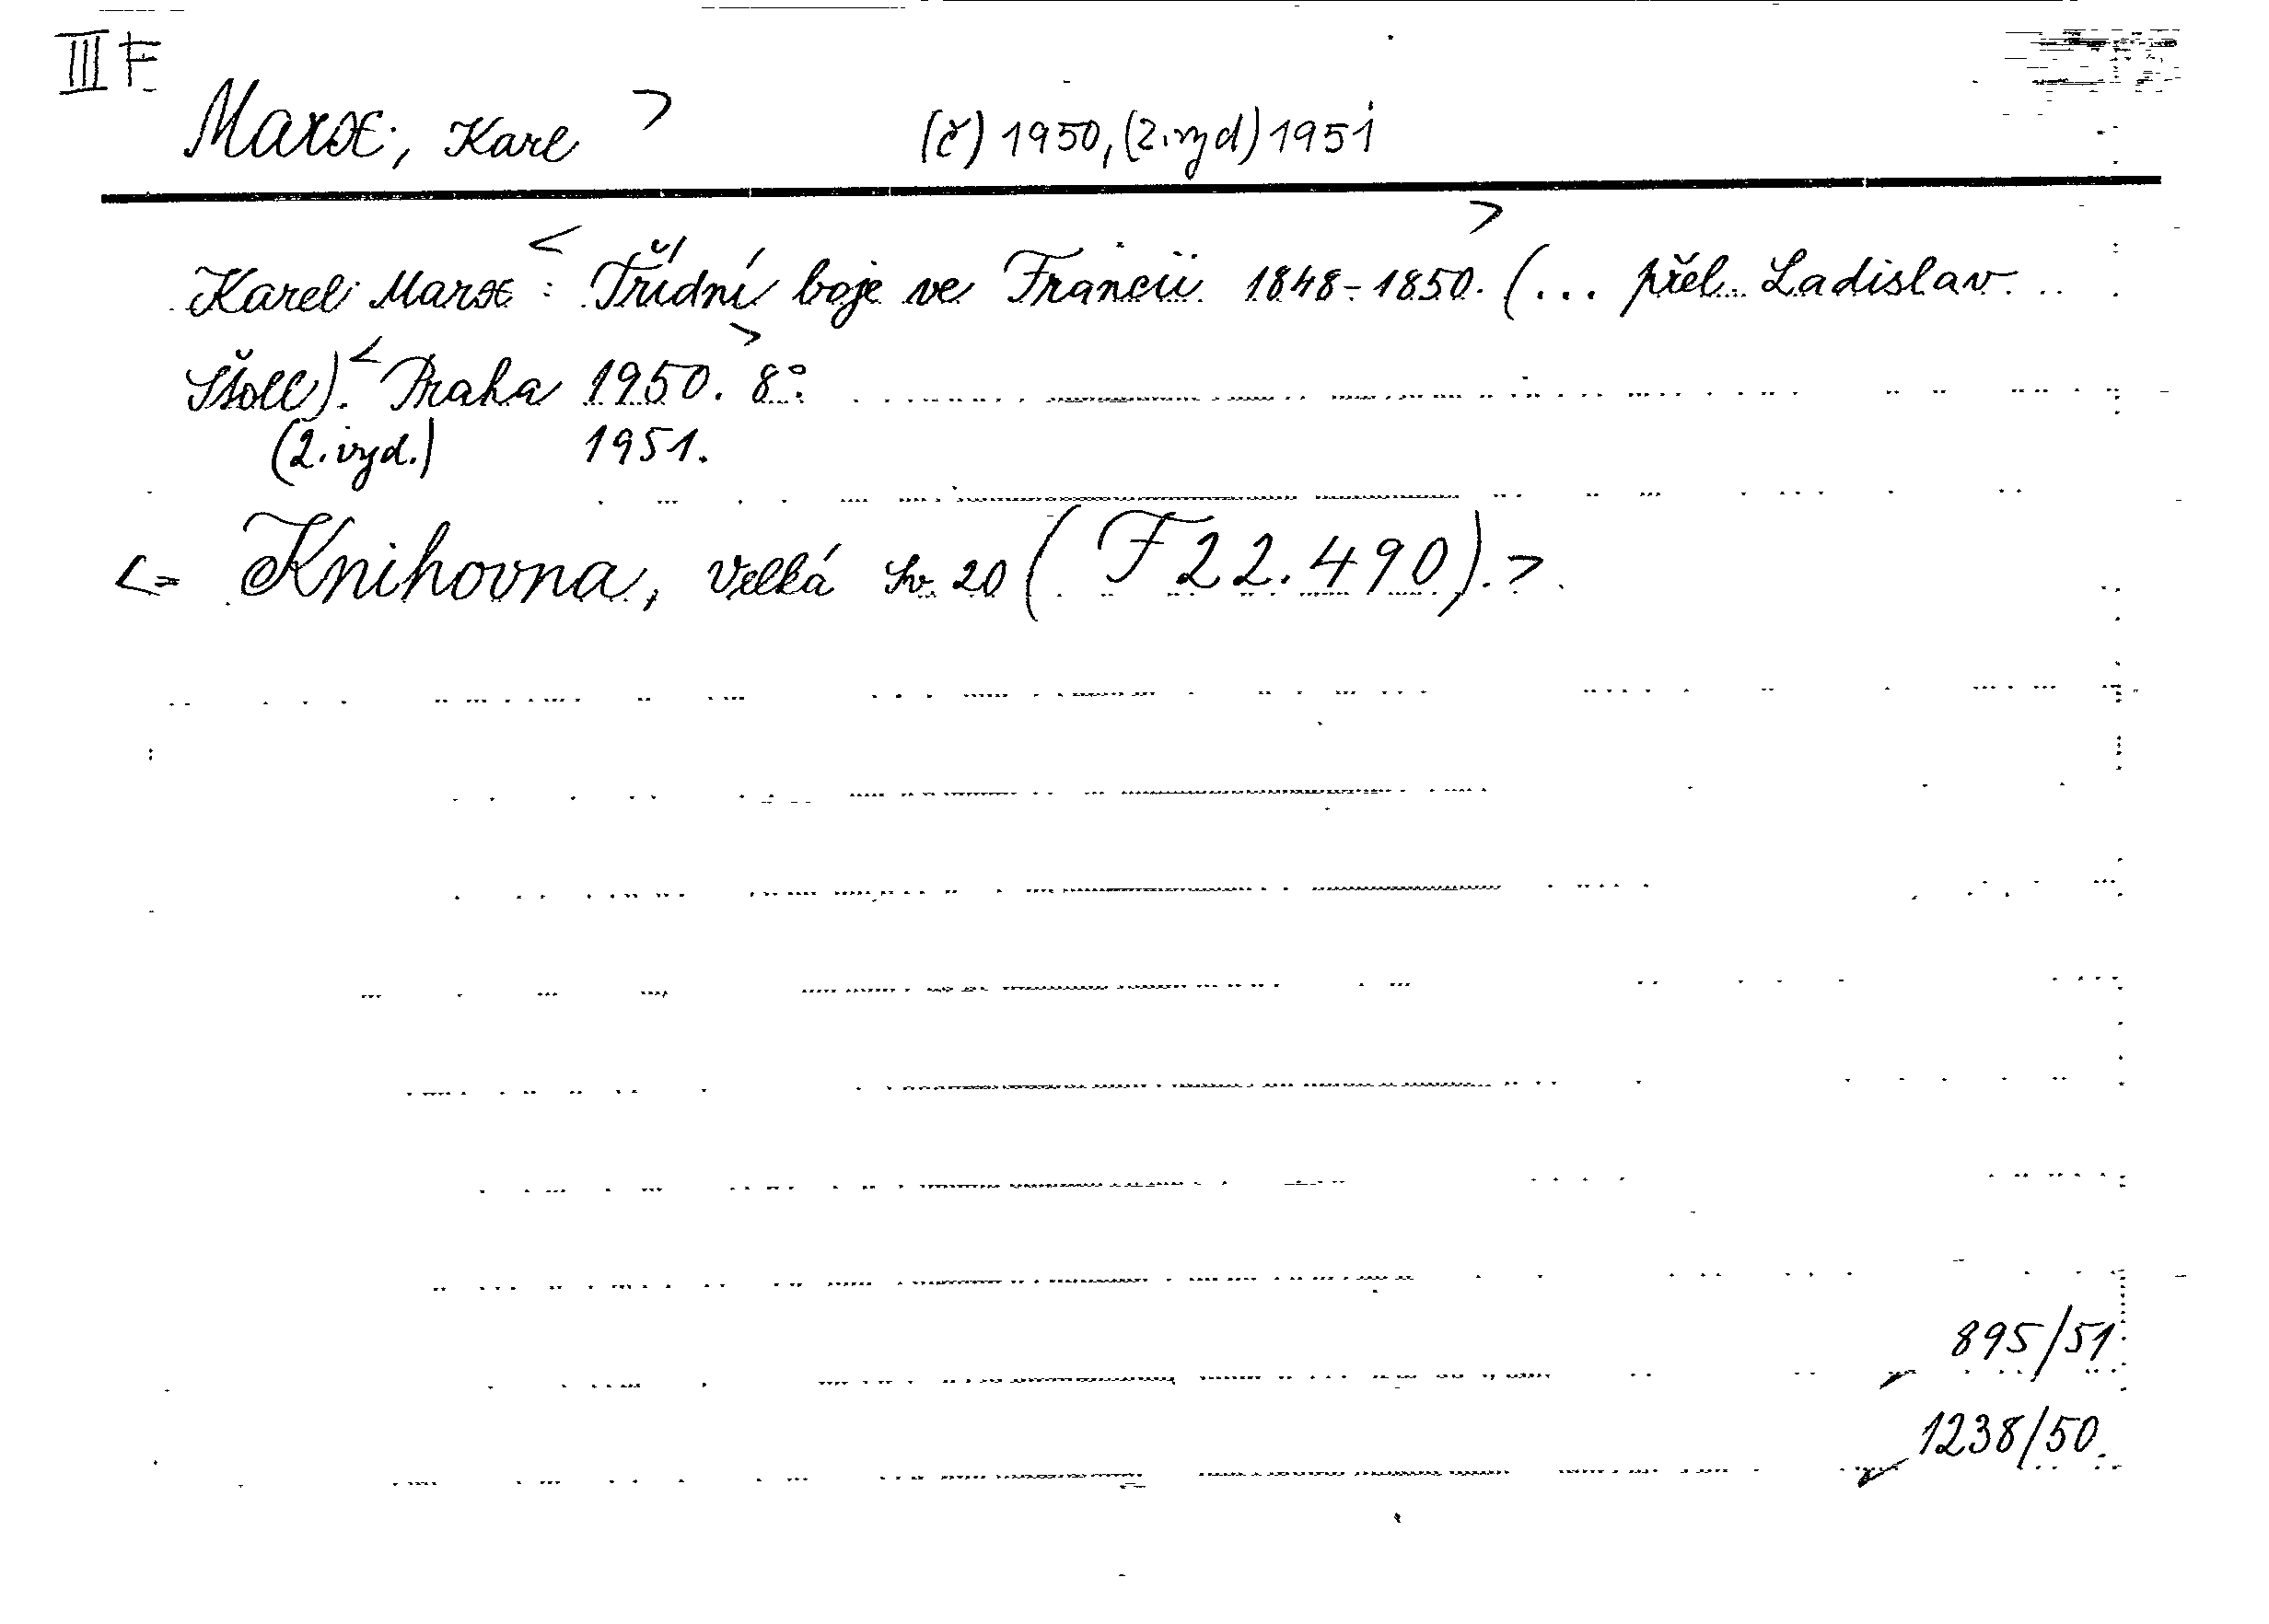 III F
Marx, Karl > (č) 1950, (2. vyd) 1951
Karel Marx: < Třídní boje ve Francii 1848-1850. > (... přel. Ladislav
Štoll). < Praha 1950. > 8°.
(2. vyd.) 1951.
<= Knihovna, Velká Sv. 20 (F 22.490). >
895/51
1238/50.